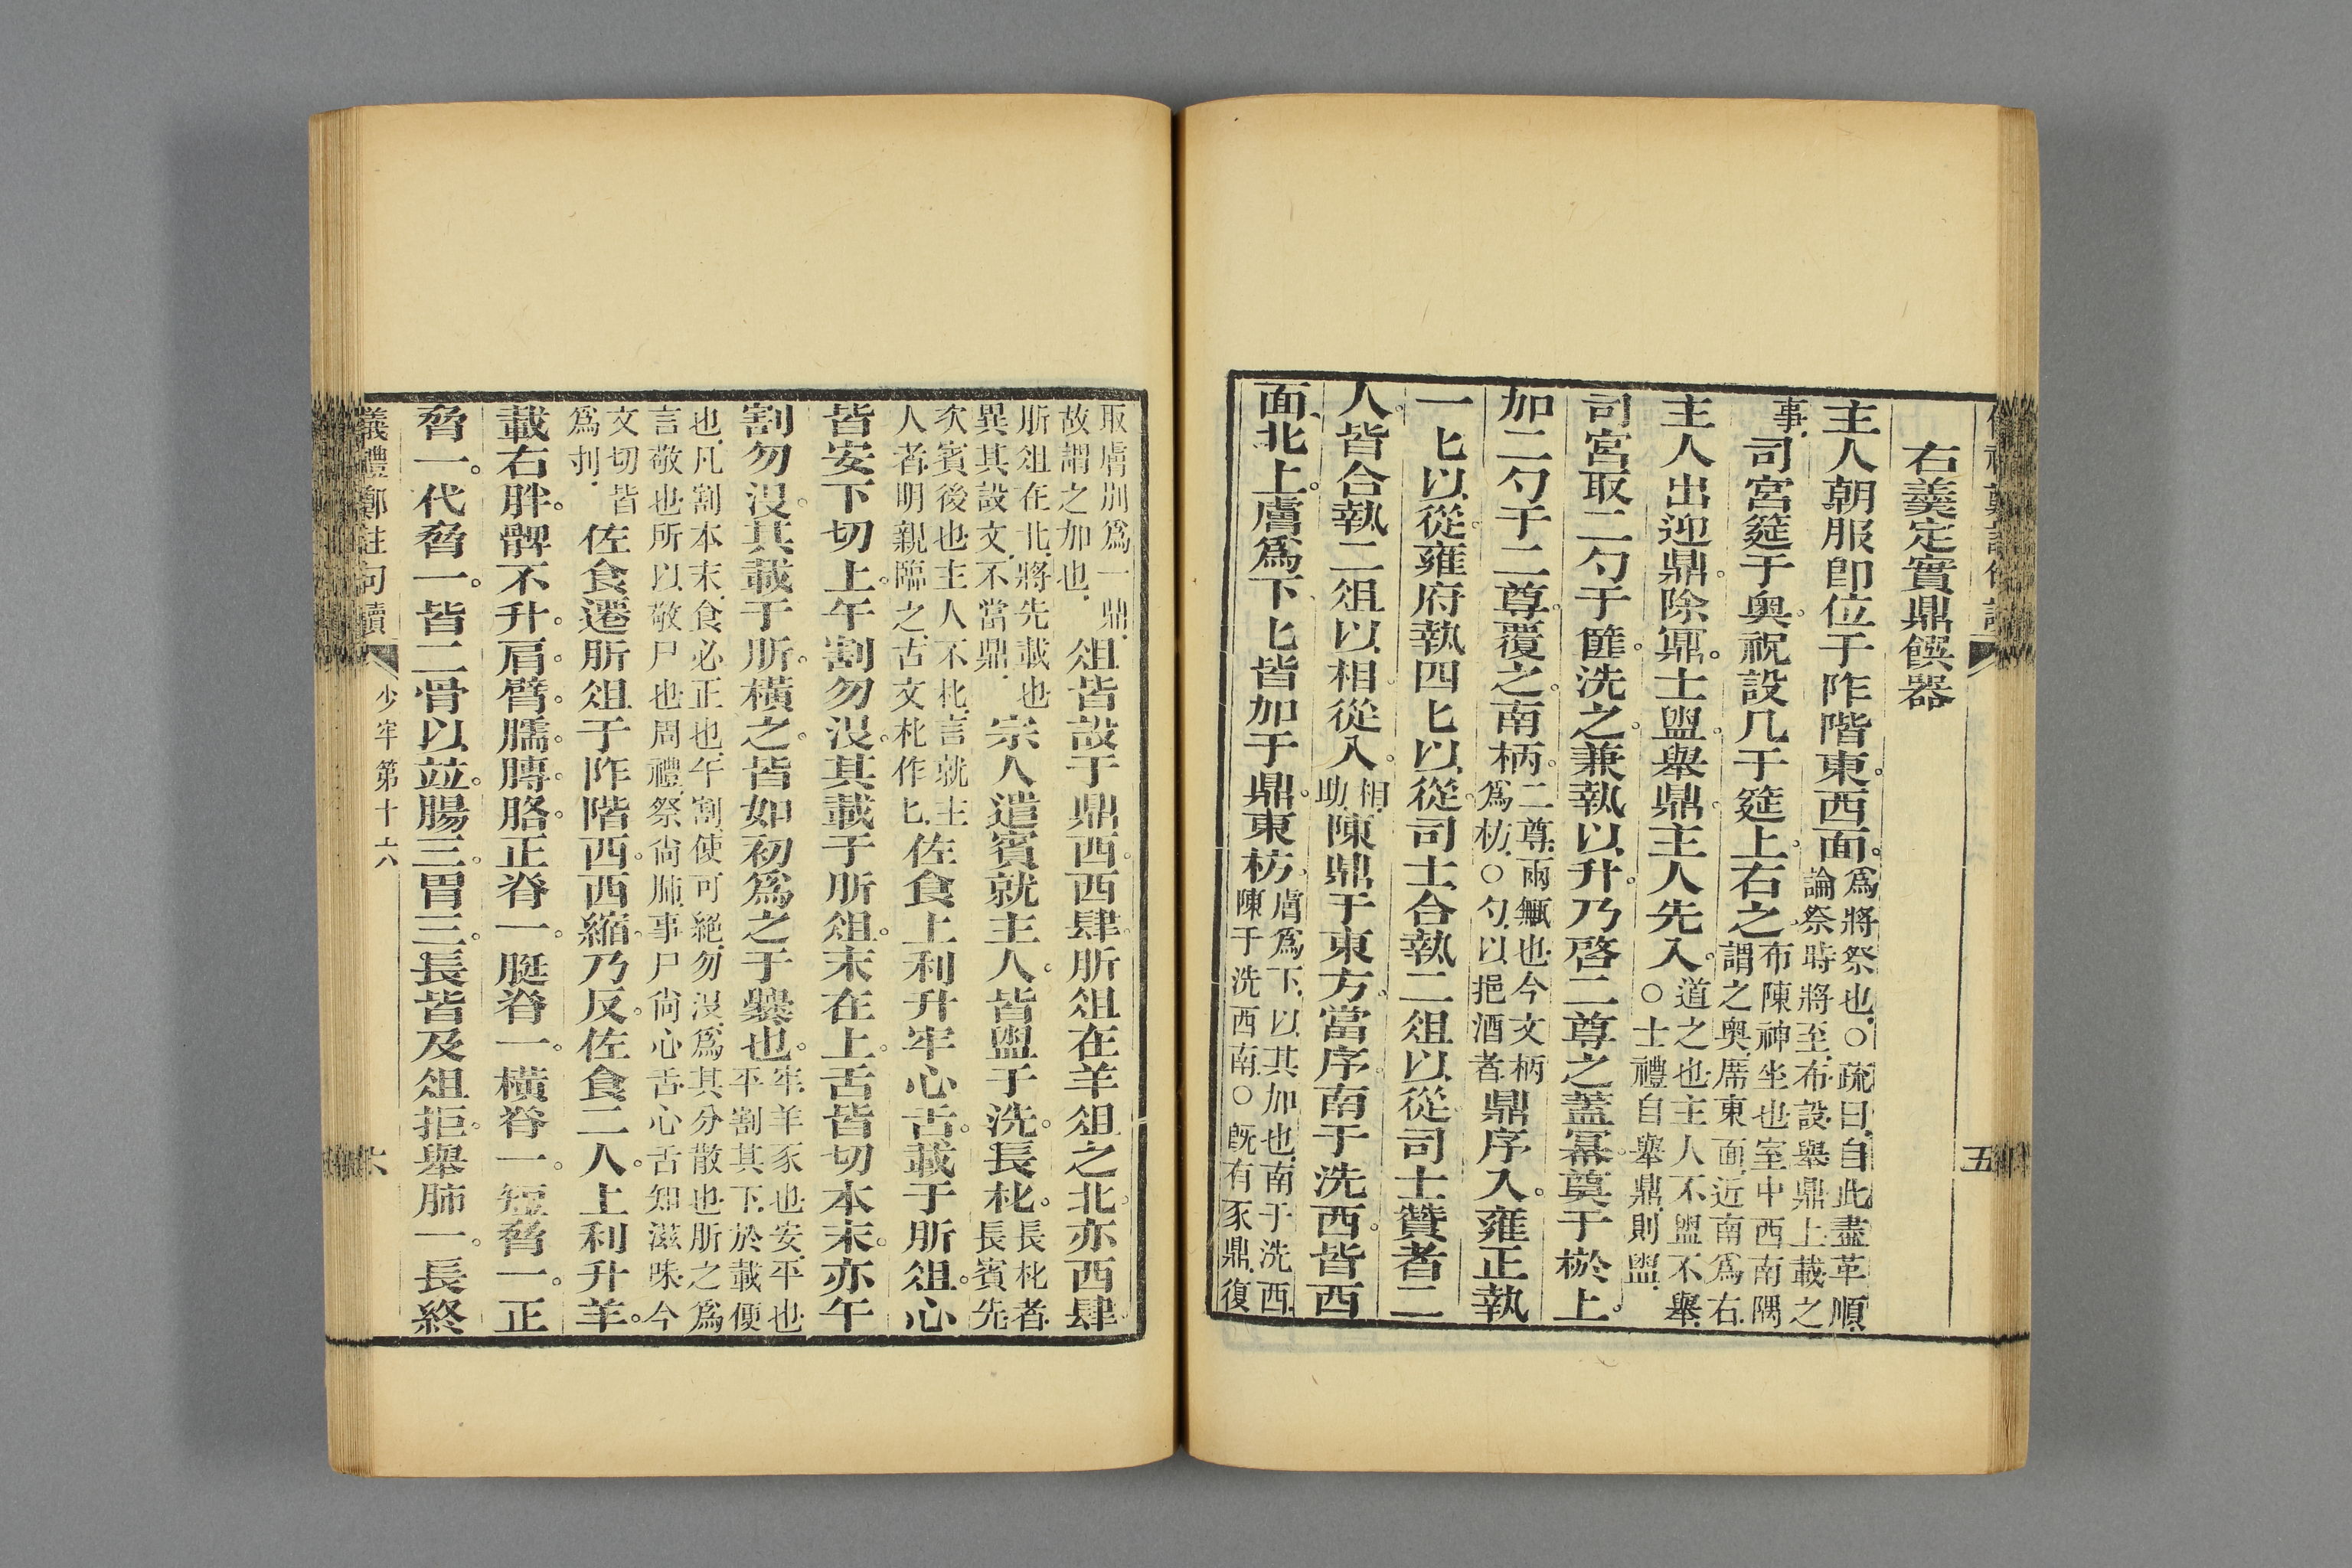 右羹定實鼎饌器
主人朝服即位于阼階東。西面。爲將祭也。○疏曰、自此盡革順、
論祭時將至、布設舉鼎上載之
事、司宮筵于奥。祝設几于筵上。右之。布陳神坐也、室中西南隅
謂之奥、席東面、近南爲右、
主人出迎鼎。除鼏。士盥舉鼎。主人先入。道之也、主人不盥不舉、
○士禮自舉鼎、則盥、
司宮取二勺于篚。洗之。兼執以升。乃啓二尊之蓋冪。奠于棜上。
加二勺于二尊。覆之。南柄。二尊、兩甒也、今文柄
爲枋、○勺、以挹酒者、鼎序入。雍正執
一匕以從。雍府執四匕以從。司士合執二俎以從。司士贊者二
人。皆合執二俎以相從入。相、
助、陳鼎于東方。當序。南于洗西。皆西
面北上。膚爲下。匕皆加于鼎。東枋。膚爲下、以其加也、南于洗西、
陳于洗西南、○旣有豕鼎、復
取膚別爲一鼎、
故謂之加也、俎皆設于鼎西。西肆。肵俎在羊俎之北。亦西肆。
肵俎在北、將先載也
異其設文、不當鼎、宗人遣賓就主人。皆盥于洗。長朼。長朼者、
長賓先、
次賓後也、主人不朼、言就主
人者、明親臨之、古文朼作匕、佐食上利升牢心舌。載于肵俎。心
皆安下切上。午割勿没。其載于肵俎。末在上。舌皆切本末。亦午
割勿没。其載于肵。橫之。皆如初爲之于爨也。牢、羊豕也、安、平也
平割其下、於載便
也、凡割本末、食必正也、午割、使可絕、勿没、爲其分散也、肵之爲
言敬也、所以敬尸也、周禮祭尙肺、事尸尙心舌、心舌知滋味、今
文切皆
爲刌、佐食遷肵俎于阼階西。西縮。乃反。佐食二人。上利升羊。
載右胖。髀不升。肩。臂。臑。膞。胳。正脊一。脡脊一。橫脊一。短脅一。正
脅一。代脅一。皆二骨以竝。腸三。胃三。長皆及俎拒。舉肺一。長終
儀禮鄭註句讀
少牢第十六
五